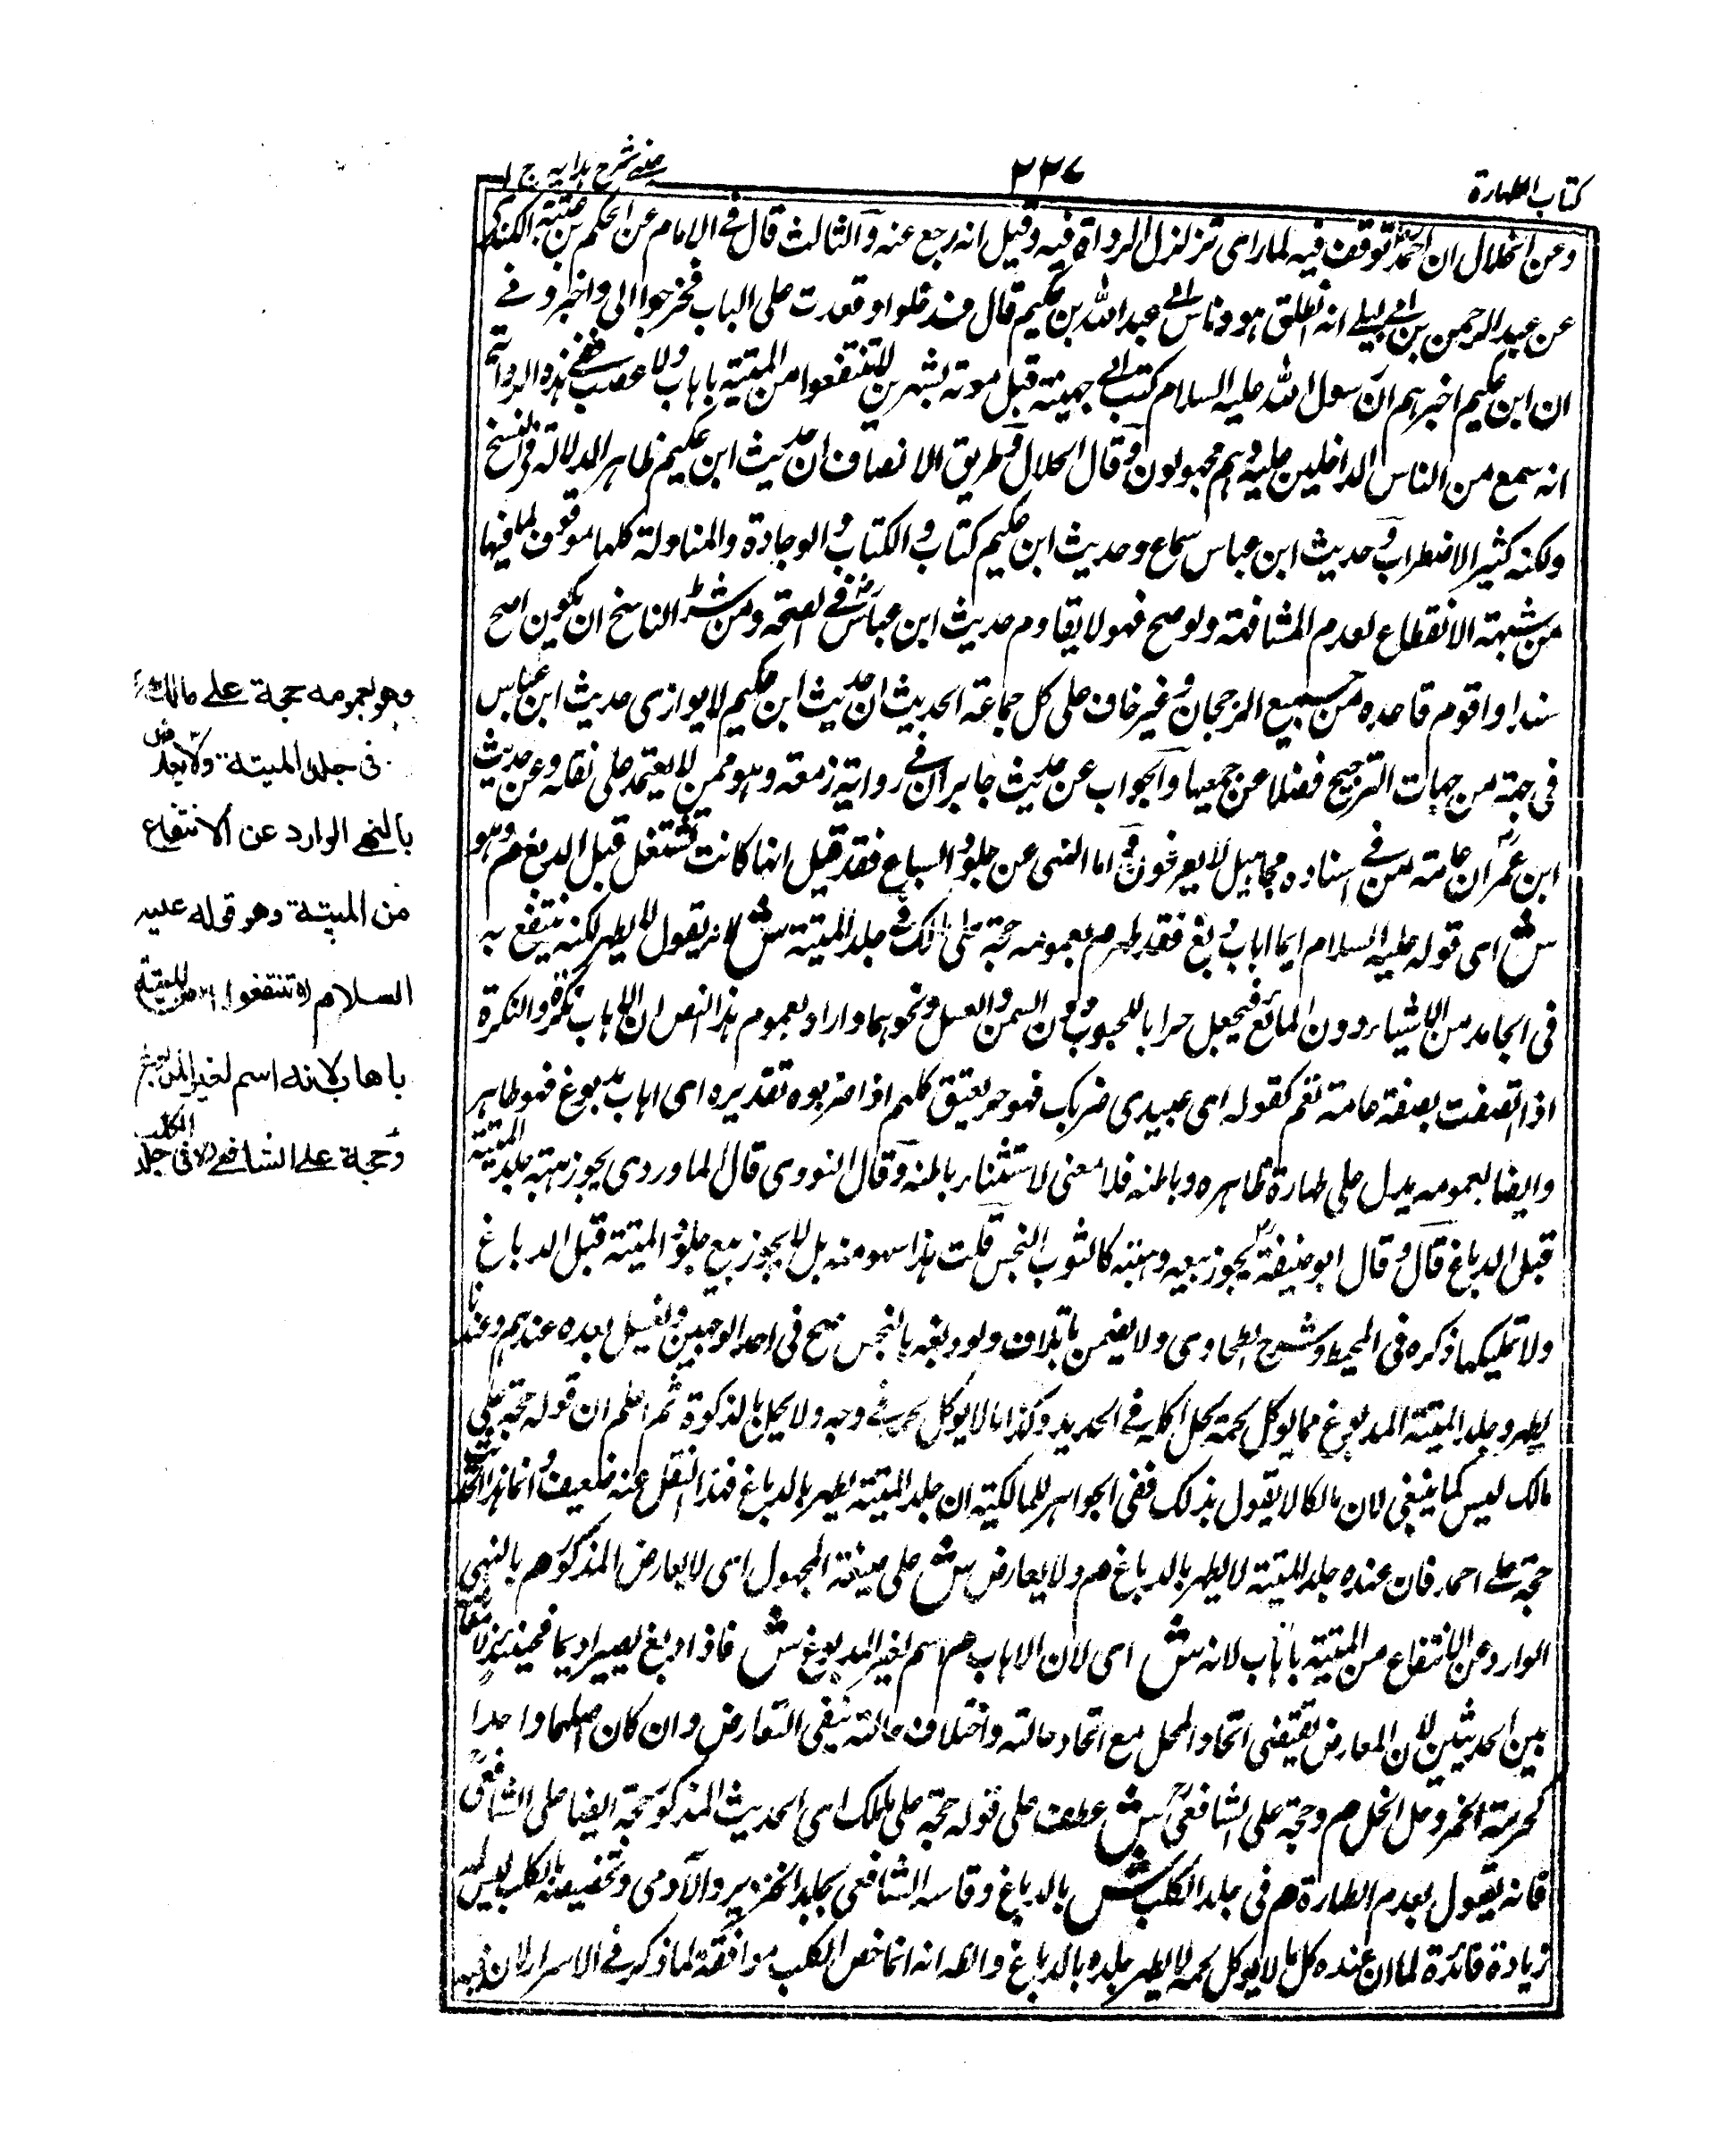 كتاب الطهارة
٢٢٧
عينے شرح هدايه ج ١
وعن الخلال ان احمد توقف فيه لما راى تزلزل الرواة فيه وقيل انه رجع عنه والثالث قال فے الامام عن الحكم بن عتيبة الكندى
عن عبد الرحمن بن ابے ليلے انه انطلق هو وناس الے عبد الله بن عكيم قال فدخلوا وقعدت على الباب فخرجوا الى واخبرونے
ان ابن عكيم اخبرهم ان رسول الله عليه السلام كتب الے جهينة قبل موته بشهرين لا تنتفعوا من الميتة باهاب ولا عصب ففے هذه الرواية
انه سمع من الناس الداخلين عليه وهم مجهولون وقال الخلال وطريق الانصاف ان حديث ابن عكيم ظاهر الدلالة فى النسخ
ولكنه كثير الاضطراب وحديث ابن عباس سماع وحديث ابن عكيم كتاب والكتاب والوجادة والمناولة كلها موقوف لما فيها
من شبهة الانقطاع لعدم المشافهة ولو صح فهو لا يقاوم حديث ابن عباس فے الصحة ومن شرط الناسخ ان يكون اصح
سندا واقوم قاعدة من جميع الرجحان وغير خاف على كل جماعة الحديث ان حديث ابن عكيم لا يوازى حديث ابن عباس
فى جهة من جهات الترجيح فضلا عن جميعها والجواب عن حديث جابر ان فے رواية زمعة وهو ممن لا يعتمد على نقله وعن حديث
ابن عمر ان عامة من فے اسناده مجاهيل لا يعرفون واما النهى عن جلود السباع فقد قيل انها كانت تستعمل قبل الدبغ م وهو
ش اى قوله عليه السلام ايما اهاب دبغ فقد طهر م بعمومه حجة على مالك فى جلد الميتة ش لانه يقول لا يطهر لكنه ينتفع به
فى الجامد من الاشياء دون المائع فيجعل جرابا للحبوب دون السمن والعسل ونحوهما واراد بعموم هذا النص ان الاهاب نكرة والنكرة
اذا اتصفت بصفة عامة تعم كقوله اى عبيدى ضربك فهو حر يعتق كلهم اذا ضربوه تقديره اى اهاب مدبوغ فهو طاهر
وايضا بعمومه يدل على طهارة ظاهره وباطنه فلا معنى لاستثناء باطنه وقال النووى قال الماوردى يجوز هبة جلد الميتة
قبل الدباغ قال وقال ابو حنيفة يجوز بيعه وهبته كالثوب النجس قلت هذا سهو منه بل لا يجوز بيع جلود الميتة قبل الدباغ
ولا تمليكها ذكره فى المحيط وشرح الطحاوى ولا يضمن باتلاف ولو دبغه بالنجس يصح فى احد الوجهين ويغسل بعده عندهم وعندنا
يطهر وجلد الميتة المدبوغ مما يوكل لحمه يحل اكله فے الجديد وكذا ما لا يوكل لحمه فے وجه ولا يحل بالذكوة ثم اعلم ان قوله حجة على
مالك ليس كما ينبغى لان مالكا لا يقول بذلك ففى الجواهر للمالكية ان جلد الميتة يطهر بالدباغ فهذا النقل عنه ضعيف وانما هذا الحديث
حجة علے احمد فان عنده جلد الميتة لا يطهر بالدباغ م ولا يعارض ش على صيغة المجهول اى لا يعارض المذكور م بالنهى
الوارد عن الانتفاع من الميتة باهاب لانه ش اى لان الاهاب م اسم لغير المدبوغ ش فاذا دبغ يصير اديما فحينئذ لا تعارض
بين الحديثين لان المعارض يقتضى اتحاد المحل مع اتحاد حالته واختلاف حالته ينفى التعارض وان كان اصلهما واحدا
كحرمة الخمر وحل الخل م وحجة على الشافعى ش عطف على قوله حجة على مالك اى الحديث المذكور حجة ايضا على الشافعى
فانه يقول بعدم الطهارة م فى جلد الكلب ش بالدباغ وقاسه الشافعى بجلد الخنزير والآدمى وتخصيصه بالكلب ليس له
زيادة فائدة لما ان عنده كل ما لا يوكل لحمه لا يطهر جلده بالدباغ والله انه انما خص الكلب موافقة لما ذكر فے الاسرار لان فيه
وهو بعمومه حجة على مالك
فى جلد الميتة ولا يعارض
بالنهے الوارد عن الانتفاع
من الميتة وهو قوله عليه
السلام لا تنتفعوا من الميتة
باهاب لانه اسم لغير المدبوغ
وحجة على الشافعے فى جلد الكلب